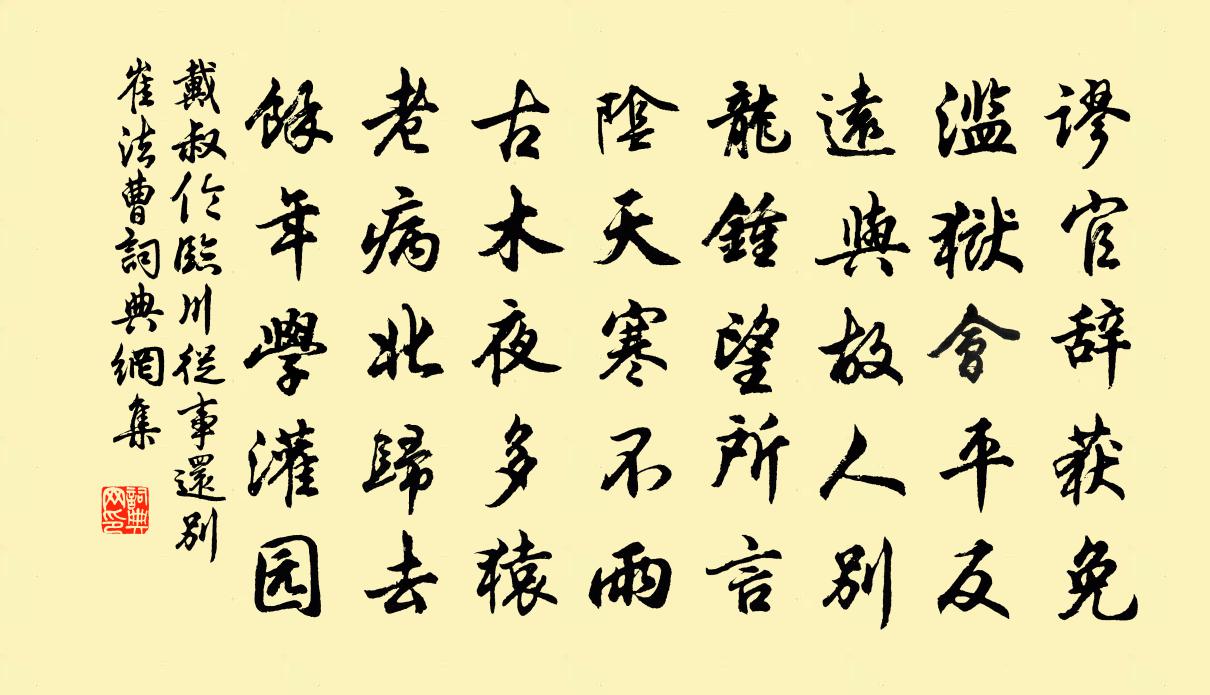 谬官辞获免
滥獄會平反
遠與故人别
龍鍾望所言
陰天寒不雨
古木夜多猿
老病北歸去
餘年學灌园
戴叔伦臨川從事還别
崔法曹詞典網集
詞典
网印